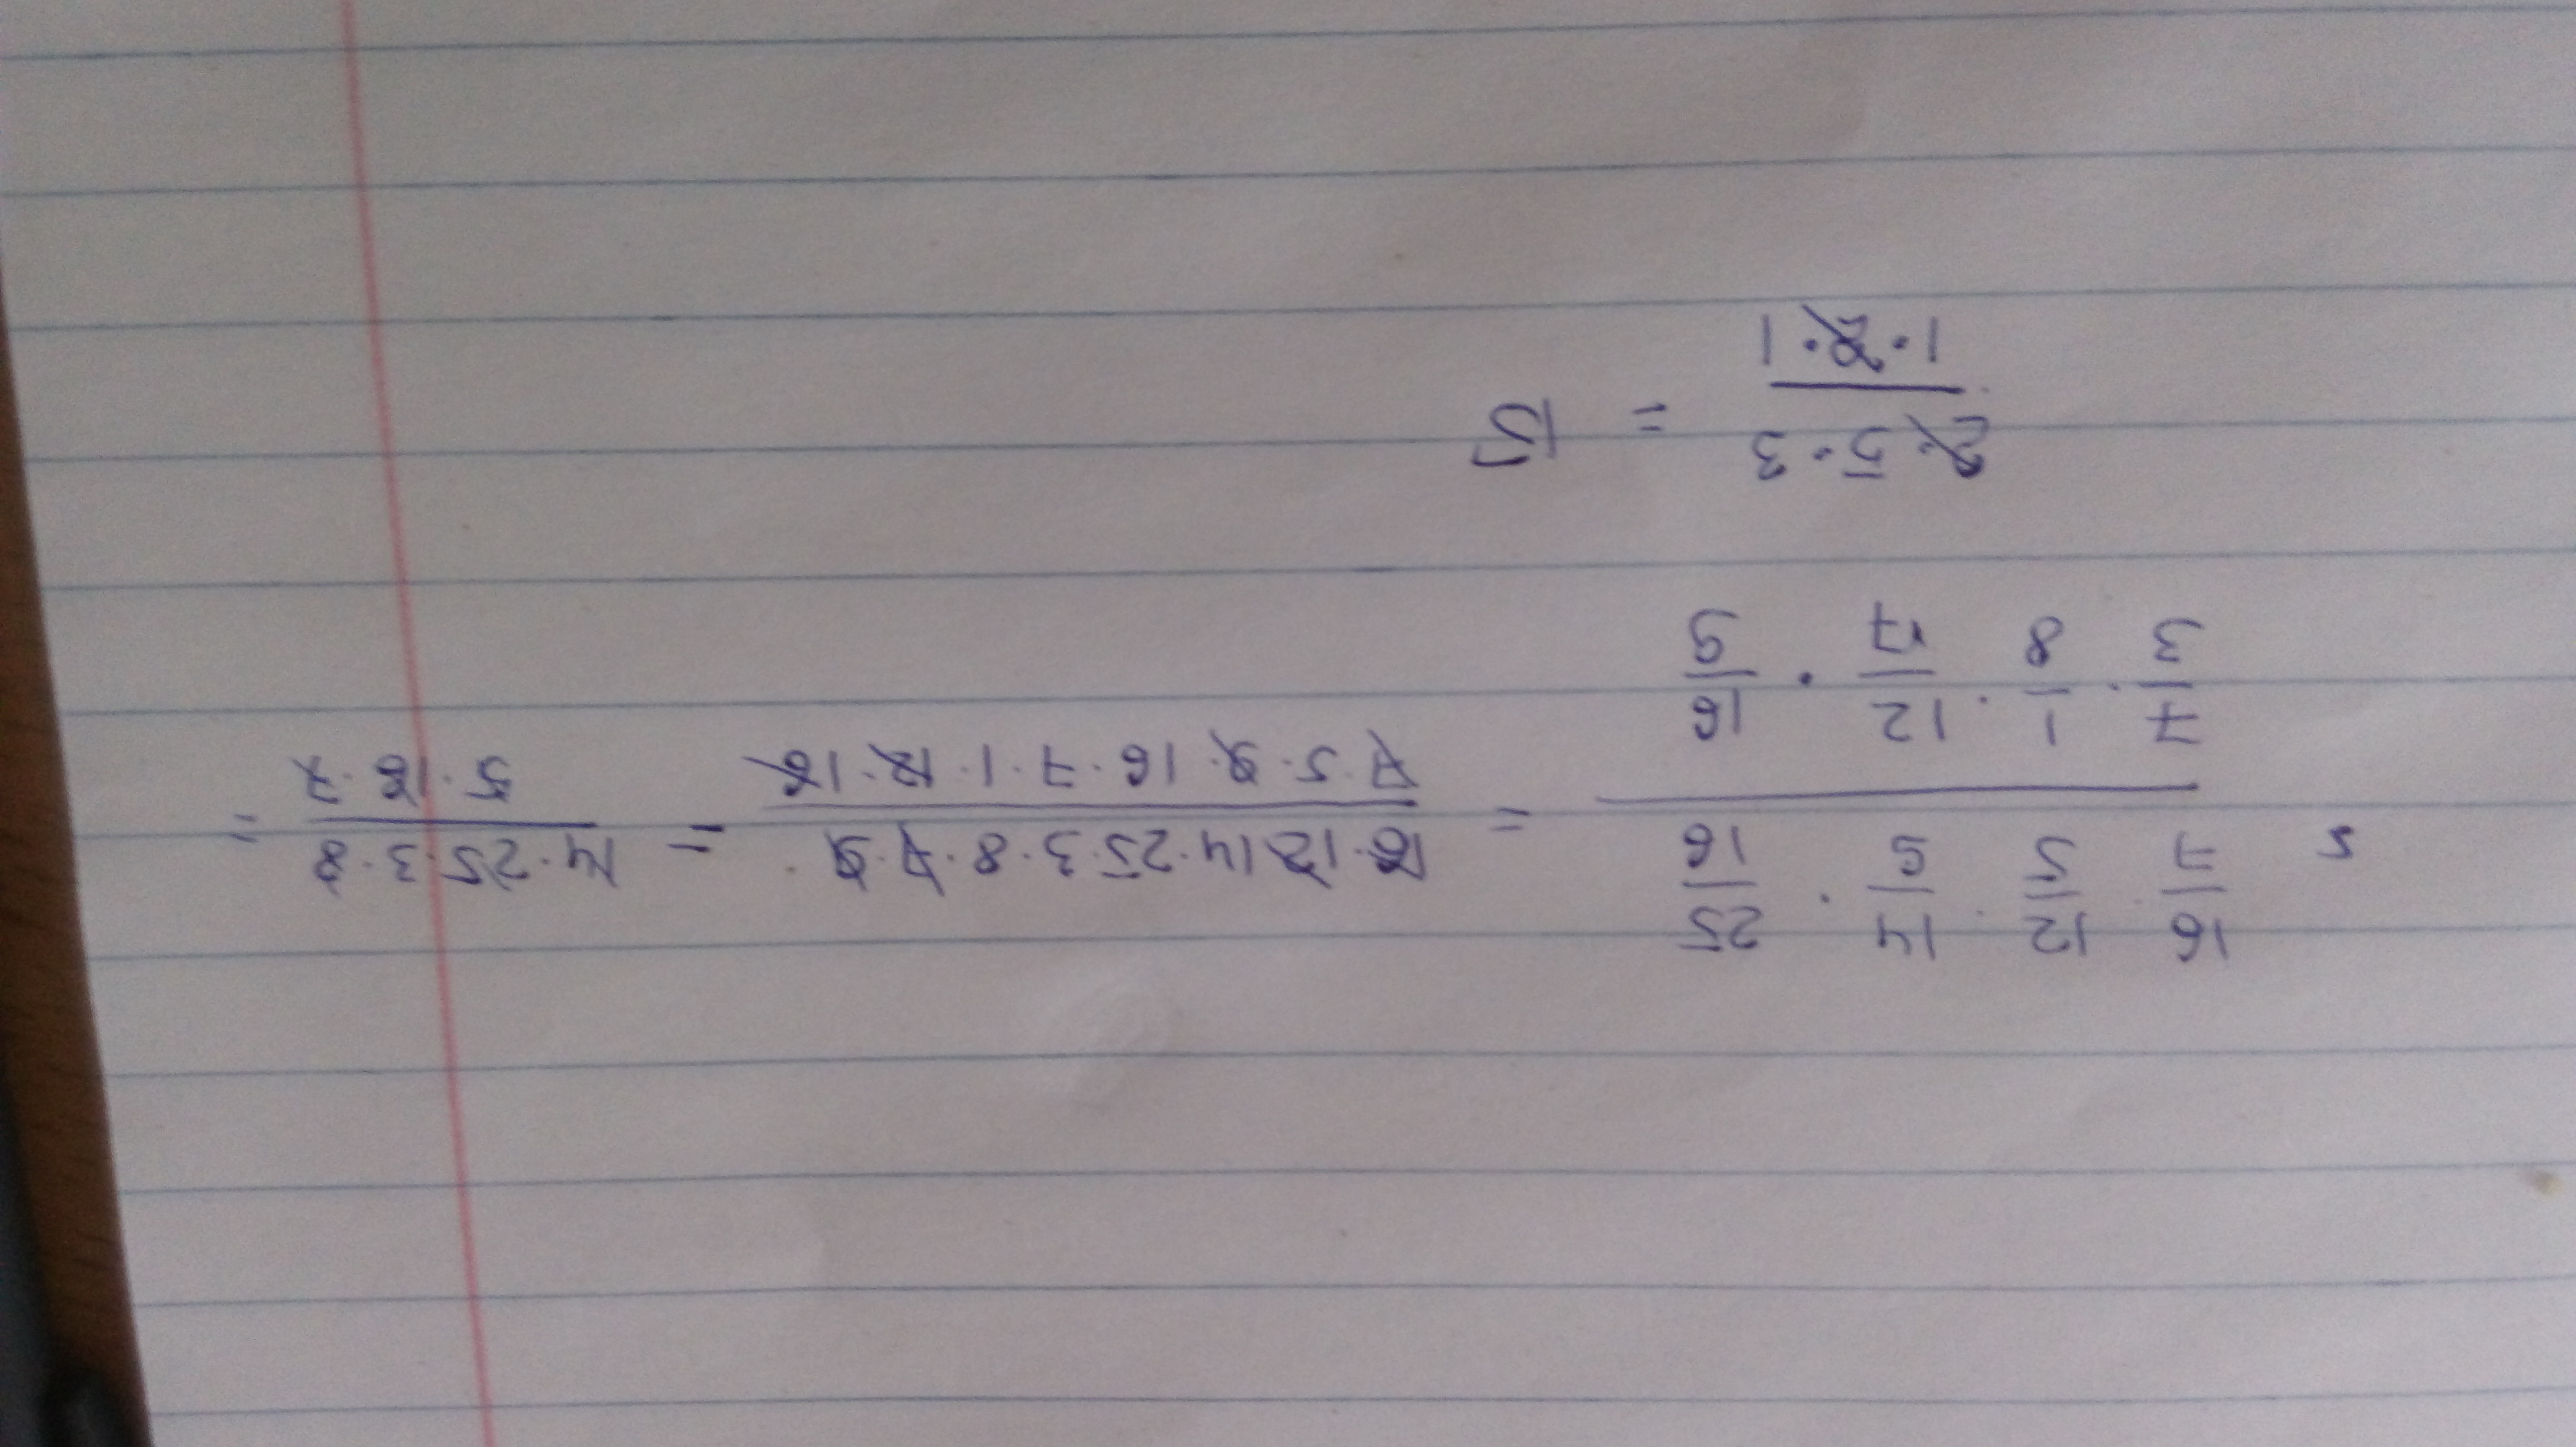 5 16/7 · 12/5 · 14/9 · 25/16
7/3 · 1/8 · 12/7 · 16/9
= 16·12·14·25·3·8·7·9 / 7·5·9·16·7·1·12·16 = 14·25·3·8 / 5·16·7 =
2·5·3 / 1·2·1 = 15